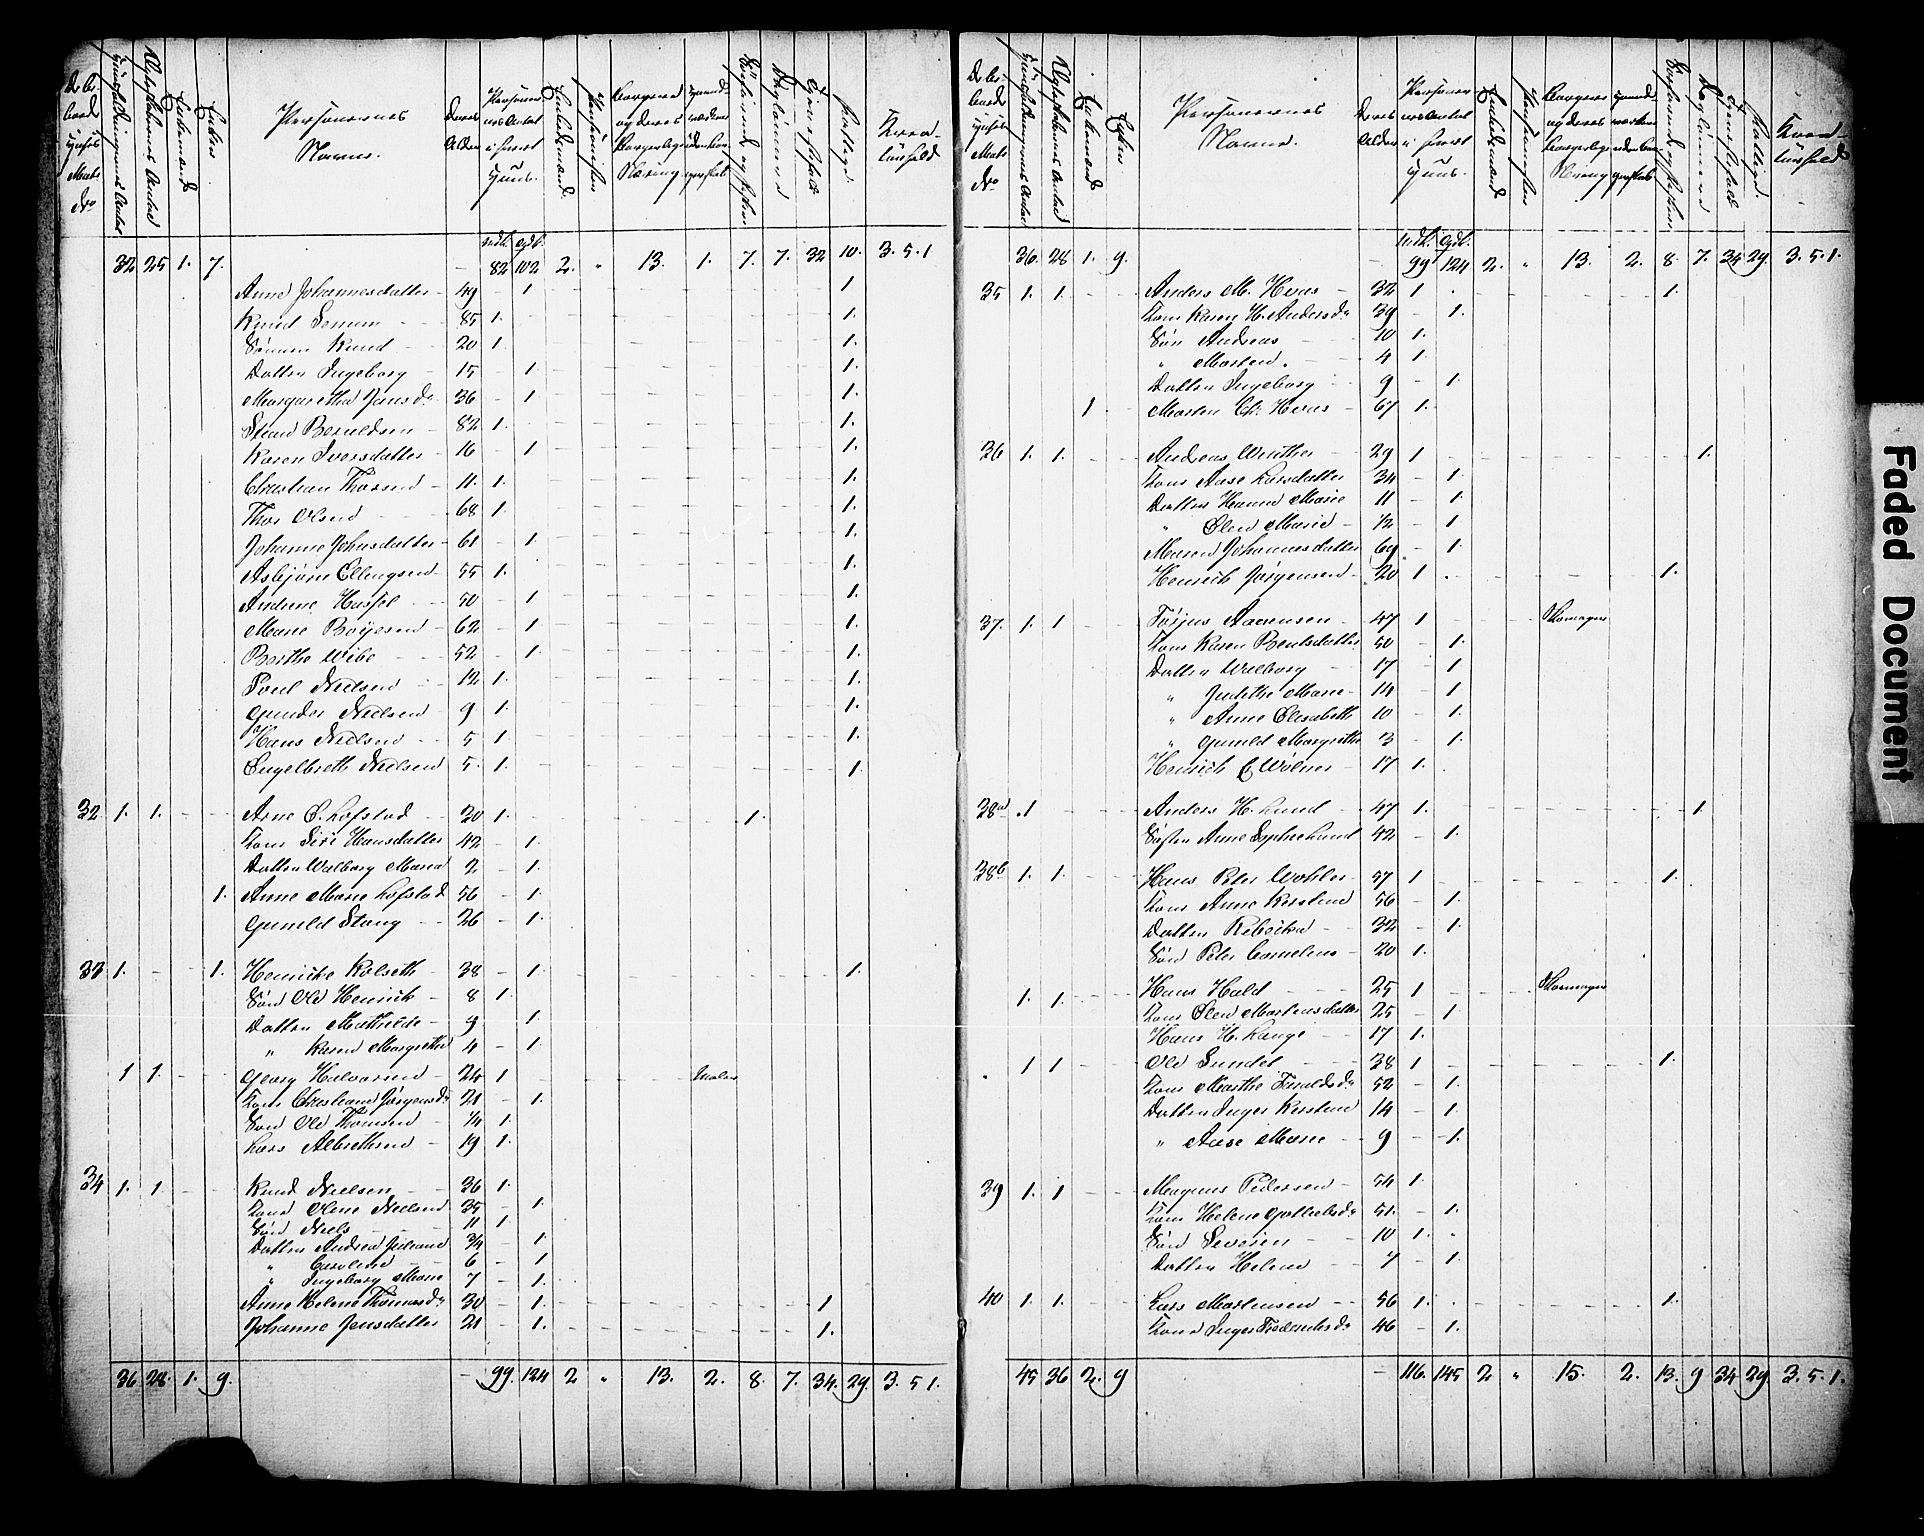 Personernes Navne.
Deres Alder
32 25 1. 7. 82 102 2. " 13. 1. 7. 7. 32 10. 3. 5. 1
Anne Johannesdatter 49 - 1 1.
Knud Sonum 85 1. 1.
Sønnen Knud 20 1. 1.
Datter Ingeborg 15 - 1 1.
Margarethe Jansd. 36 - 1 1.
82 1. 1.
Karen Iversdatter 16 - 1 1.
Christian Thorsen 11. 1. 1.
Thor Olsen 68 1. 1.
Johanne Johnsdatter 61 - 1. 1.
Asbjørn Ellengsen 55 1. 1.
Andrine Hassel 50 - 1 1.
Marie Boÿesen 62 - 1 1.
Berthe Wibe 52 - 1. 1.
Poul Nielsen 12 1. 1.
Gunder Nielsen 9 1. 1.
Hans Nielsen 5 1. 1.
Engelbreth Nielsen 5. 1. 1.
32. 1. 1. Arne C. Lofstad 30 1. 1.
Kone Siri Hansdatter 42 - 1.
Datter Walborg Maria 2 - 1.
1. Anne Marie Lofstad 56 - 1.
Gunild Stang 26 - 1.
33 1. 1. Henricke Kolseth 38 - 1 1.
Søn Ole Henrick 8 1.
Datter Mathilde 9 - 1.
" Karen Margrethe 4 - 1.
1 1. Georg Halvorsen 24 1 Maler
Kone Christiane Jørgensd. 21 - 1.
Søn Ole Thomsen 1/4 1.
Lars Albrethsen 19 1.
34 1. 1. Knud Nielsen 36 1.
Kone Olene Nielsen 35 - 1.
Søn Niels 11 1
Datter Andrea 3/4 - 1.
" Caroline 6 - 1
" Ingeborg Marie 7 - 1.
Anne Helene Thomasd. 30 - 1. 1
Johanne Jensdatter 21 - 1. 1.
36 28. 1. 9. 99. 124 2 " 13. 2. 8. 7. 34. 29. 3. 5 1.
Personernes Navne.
Deres Alder
36. 28 1. 9. 99 124 2. " 13. 2. 8. 7. 34 29. 3. 5. 1.
35 1. 1. Anders M. Hvas 32 1 1.
Kone Karen H. Andersd. 39 - 1.
Søn Andreas 10 1.
" Morten 4 1.
Datter Ingeborg 9 - 1.
1 Morten Ch. Hvas 67 1.
36 1. 1. Andreas Winther 29 1 1.
Kone Aase Larsdatter 34 - 1.
Datter Hanne Marie 11 - 1.
" Olen Marie 1/2 - 1
Maren Johannesdatter 69 - 1.
Henrick Jørgensen 20 1 1.
37. 1. 1 Aanensen 47 1 Skomager
Kone Karen Bentsdatter 50 - 1.
Datter Walborg 17 - 1
" Judithe Marie 14 - 1.
" Anne Elisabeth 10 - 1.
" Gunild Margrethe 3 - 1.
Henrick C Wølner 17 1.
38a 1 Anders H. Lund 47 1. 1.
Søster Anne Sophie Lund 42 - 1.
38b 1. 1. Hans Peter Wohler 57 1 1.
Kone Anne Kirstine 56 - 1.
Datter Rebecka 32 - 1.
Søn Peter Cornelius 20 1.
1. 1. Hans Hald 25 1 Skomager
Kone Olen Mortensdatter 25 - 1.
Hans H. Lange 17 1.
1 1 Ole Sundet 38 1 1.
Kone Marthe 52 - 1.
Datter Inger Kirstine 14 - 1.
" Aase Marie 9 - 1.
39 1. 1 Magnus Pedersen 54 1.
Kone Helene Gotliebsd. 51. - 1.
Søn Severin 10 1.
Datter Helene 7 - 1.
40 1. 1. Lars Mortensen 56 1. 1.
Kone Inger Frederichsd. 46 - 1.
45 36 2. 9 116. 145 2 " 15. 2. 13. 9 34 29. 3. 5. 1.
Faded Document